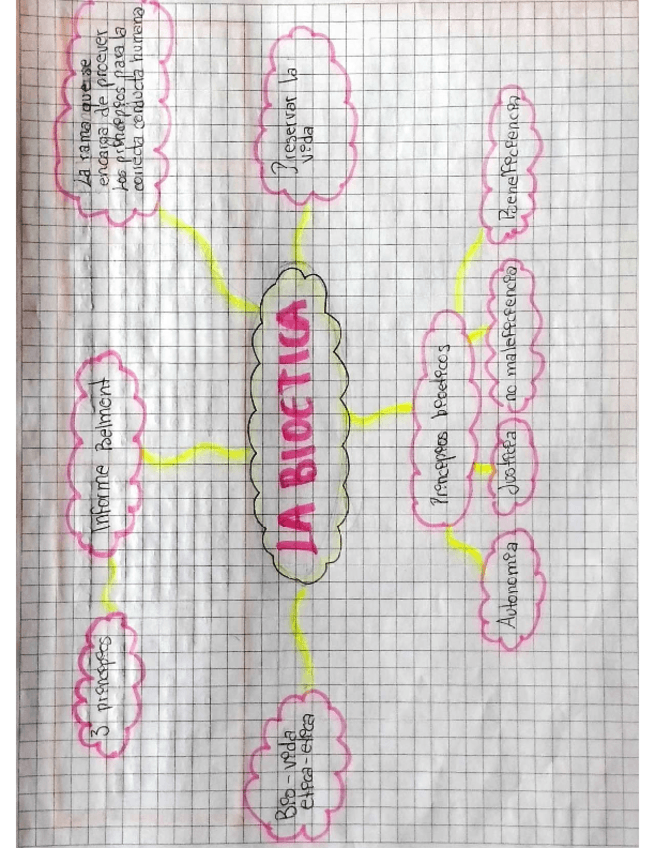 3 principios
Informe Belmont
La rama que se
encarga de proever
los principios para la
correcta conducta humana
Bio-vida
etica-etica
LA BIOETICA
Preservar la
vida
Principios bioeticos
Autonomia
Justicia
no maleficiencia
Beneficiencia